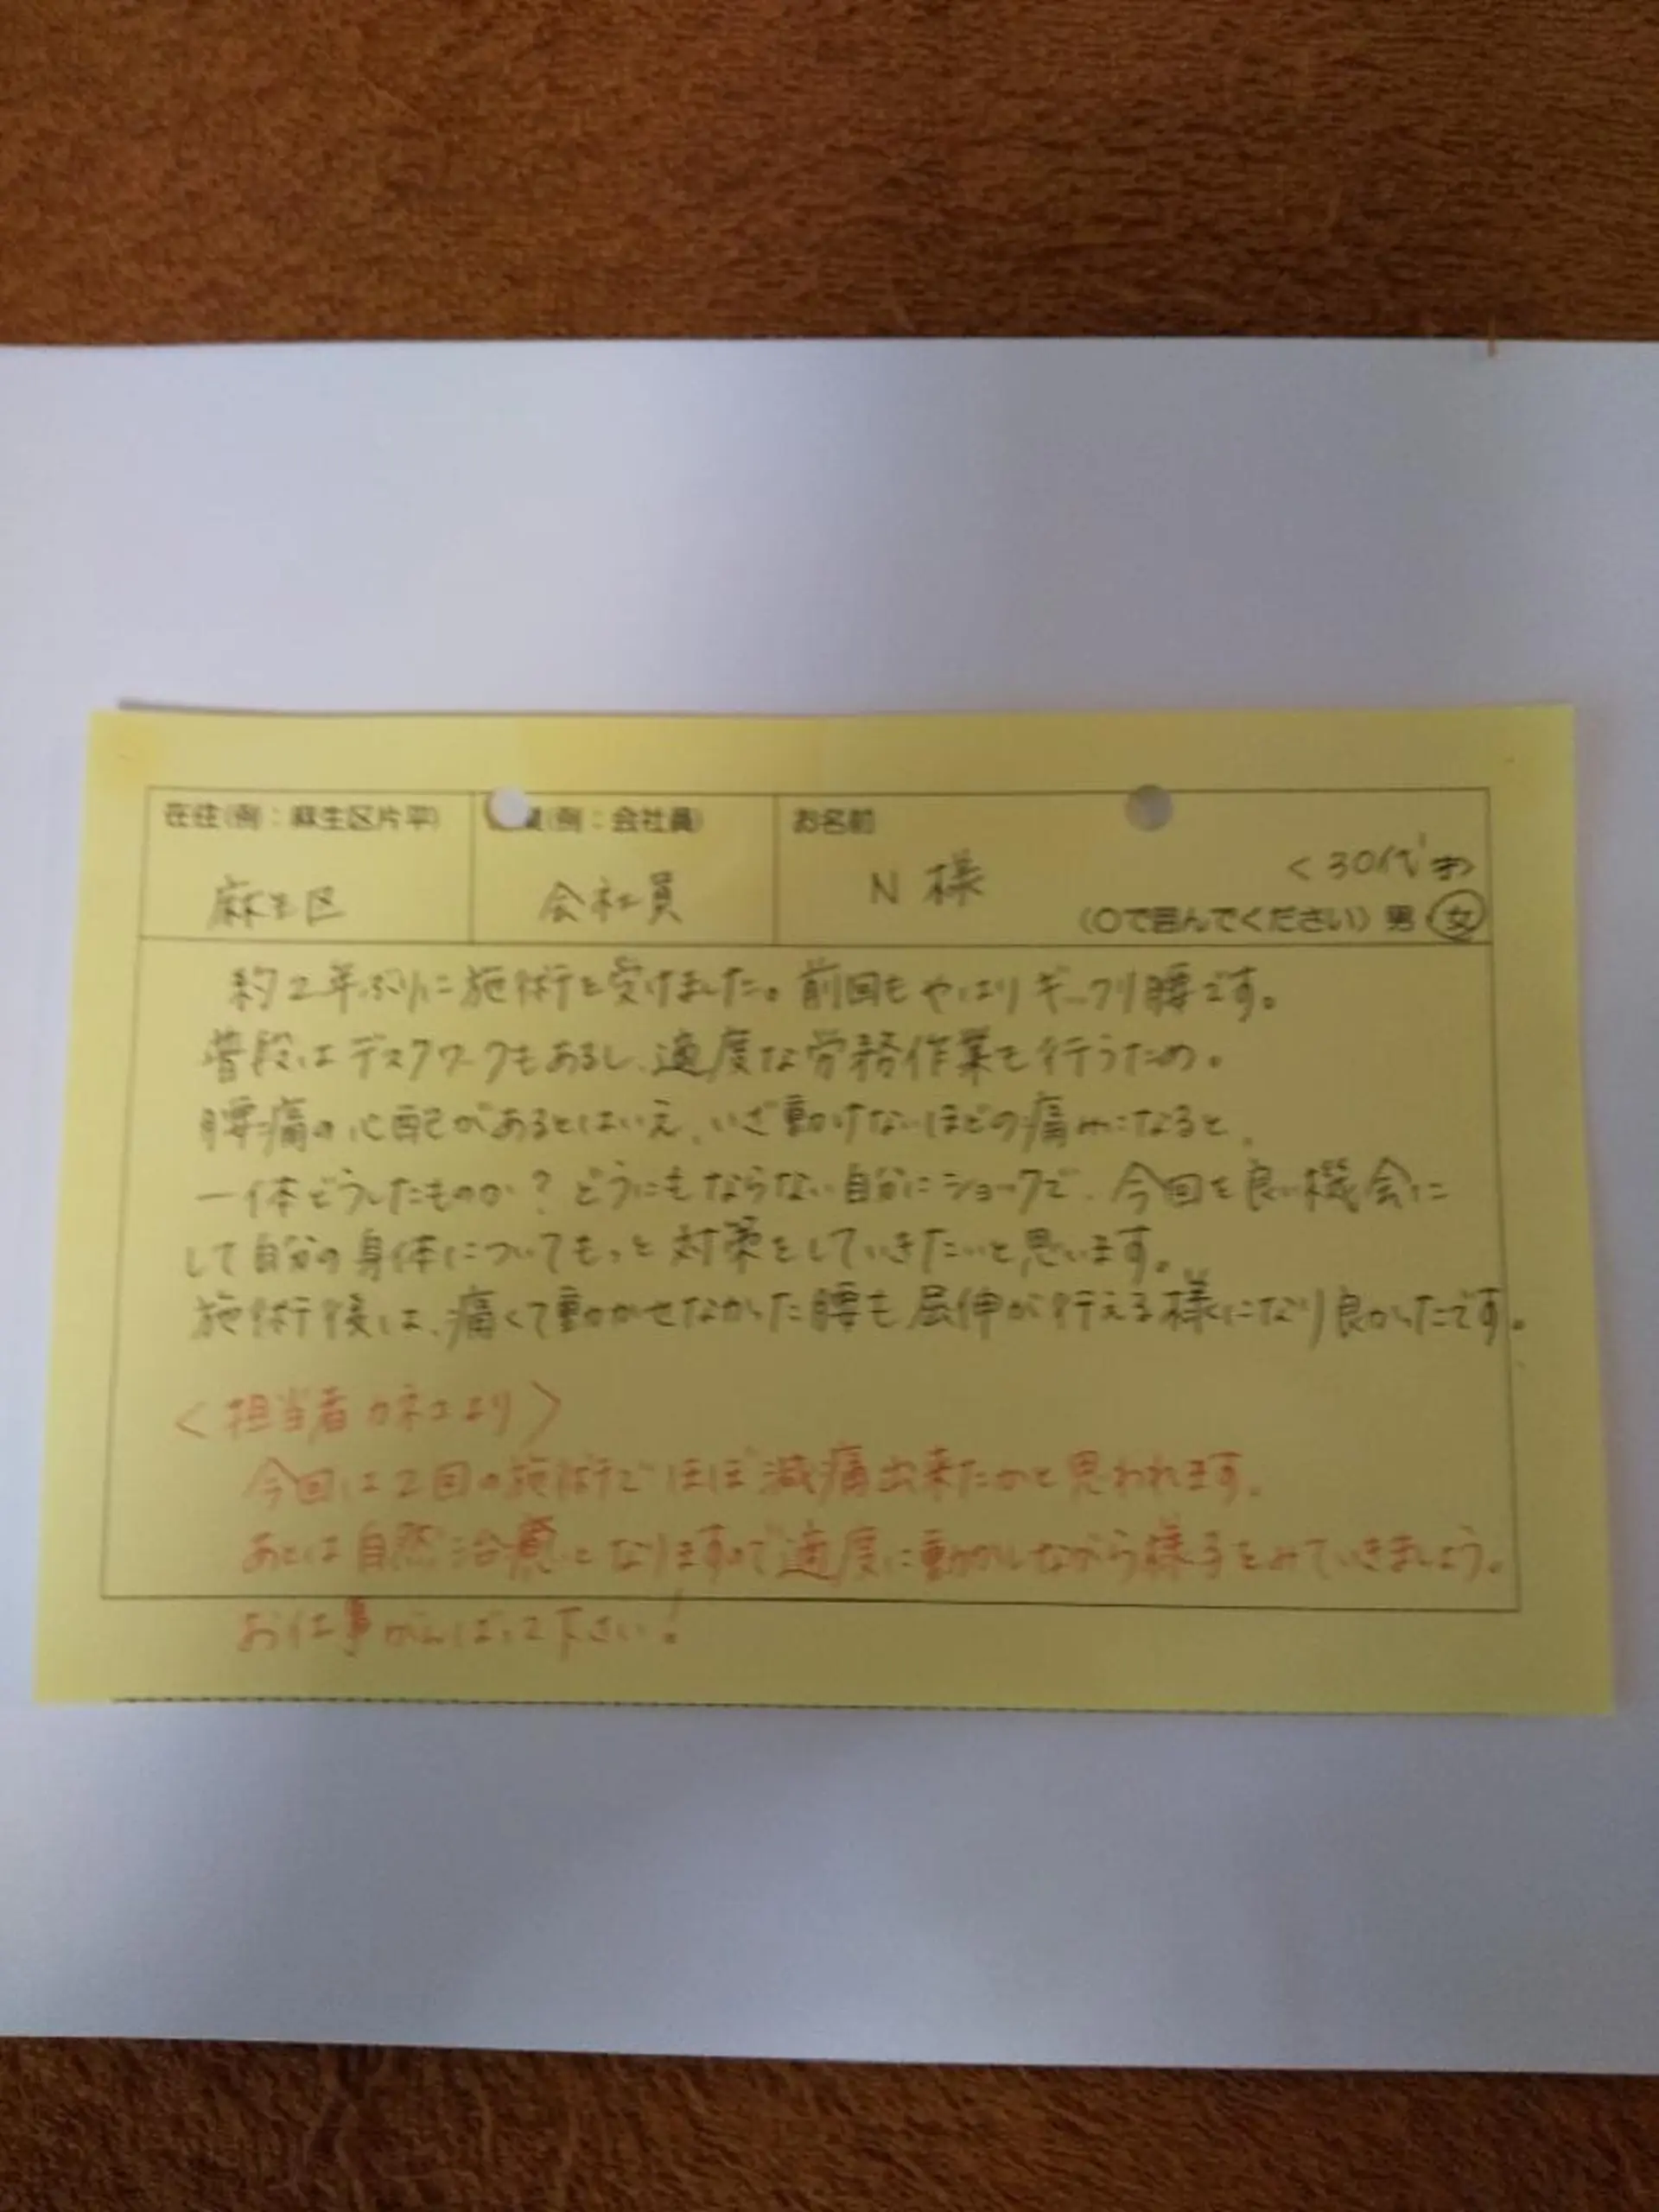 在住(例：麻生区片平)
業(例：会社員)
お名前
麻生区
会社員
N 様
<30代
(○で囲んでください) 男 女
約2年ぶりに施術を受けました。前回もやはりギックリ腰です。
普段はデスクワークもあるし、適度な労務作業も行うため。
腰痛の心配があるとはいえ、いざ動けないほどの痛みになると、
一体どうしたものか？どうにもならない自分にショックで、今回を良い機会に
して自分の身体についてもっと対策をしていきたいと思います。
施術後は、痛くて動かせなかった腰も屈伸が行える様になり良かったです。
<担当者カネコより>
今回は2回の施術でほぼ減痛出来たかと思われます。
あとは自然治癒となりますので適度に動かしながら様子をみていきましょう。
お仕事がんばって下さい！